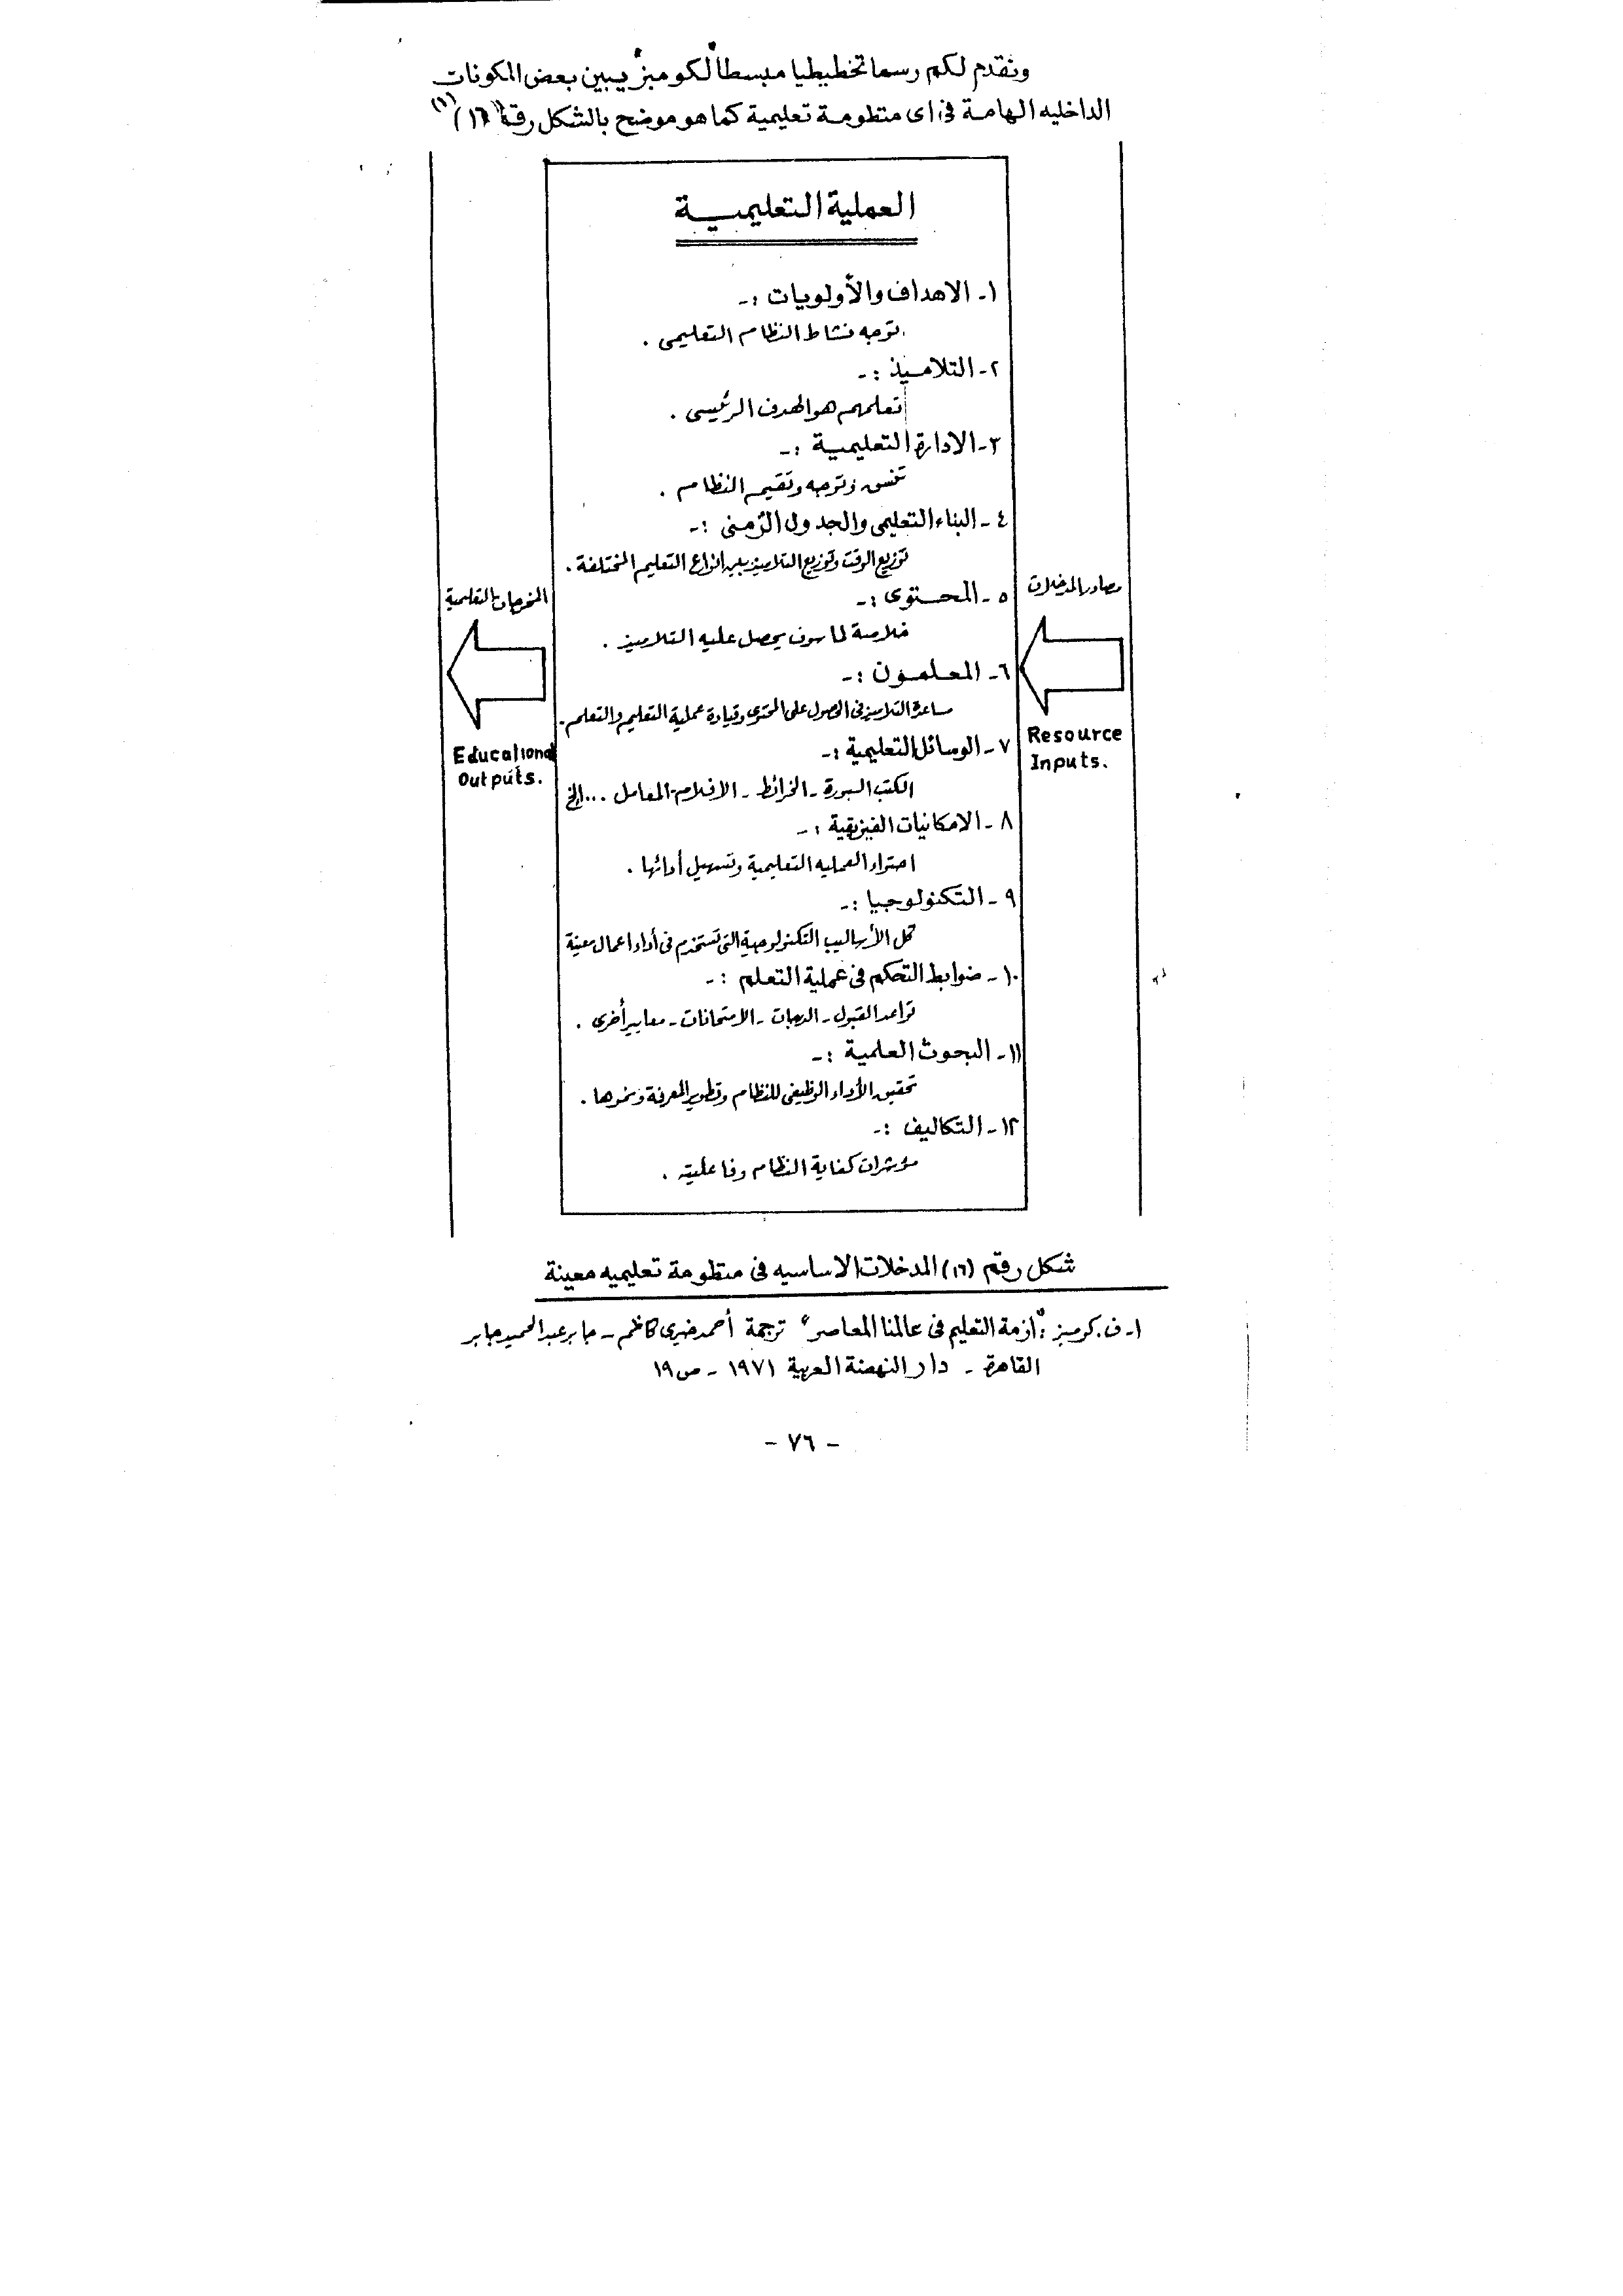 ونقدم لكم رسما تخطيطيا مبسطا "لكومبز" يبين بعض المكونات
الداخليه الهامة فى اى منظومة تعليمية كما هو موضح بالشكل رقم (١٦) (١)
العملية التعليمية
١- الاهداف والأولويات :-
توجه نشاط النظام التعليمى .
٢- التلاميذ :-
تعلمهم هو الهدف الرئيسى .
٣- الادارة التعليمية :-
تنسق وتوجه وتقيم النظام .
٤- البناء التعليمى والجدول الزمنى :-
توزيع الوقت وتوزيع التلاميذ بين انواع التعليم المختلفة .
٥- المحتوى :-
خلاصة لما سوف يحصل عليه التلاميذ .
٦- المعلمون :-
مساعدة التلاميذ فى الحصول على المحتوى وقيادة عملية التعليم والتعلم .
٧- الوسائل التعليمية :-
الكتب السبورة - الخرائط - الافلام - المعامل ... إلخ
٨- الامكانيات الفيزيقية :-
احتواء العمليه التعليمية وتسهيل أدائها .
٩- التكنولوجيا :-
كل الأساليب التكنولوجية التى تستخدم فى أداء اعمال معينة
١٠- ضوابط التحكم فى عملية التعلم :-
قواعد القبول - الدرجات - الامتحانات - معايير أخرى .
١١- البحوث العلمية :-
تحقيق الأداء الوظيفى للنظام وتطوير المعرفة ونموها .
١٢- التكاليف :-
مؤشرات كفاية النظام وفاعليته .
مصادر المدخلات
Resource
Inputs.
المخرجات التعليمية
Educational
Outputs.
شكل رقم (١٦) المدخلات الاساسيه فى منظومة تعليميه معينة
١- ف. كومبز : "أزمة التعليم فى عالمنا المعاصر" ترجمة أحمد خيرى كاظم - جابر عبد الحميد جابر
القاهرة - دار النهضة العربية ١٩٧١ - ص ١٩
- ٧٦ -